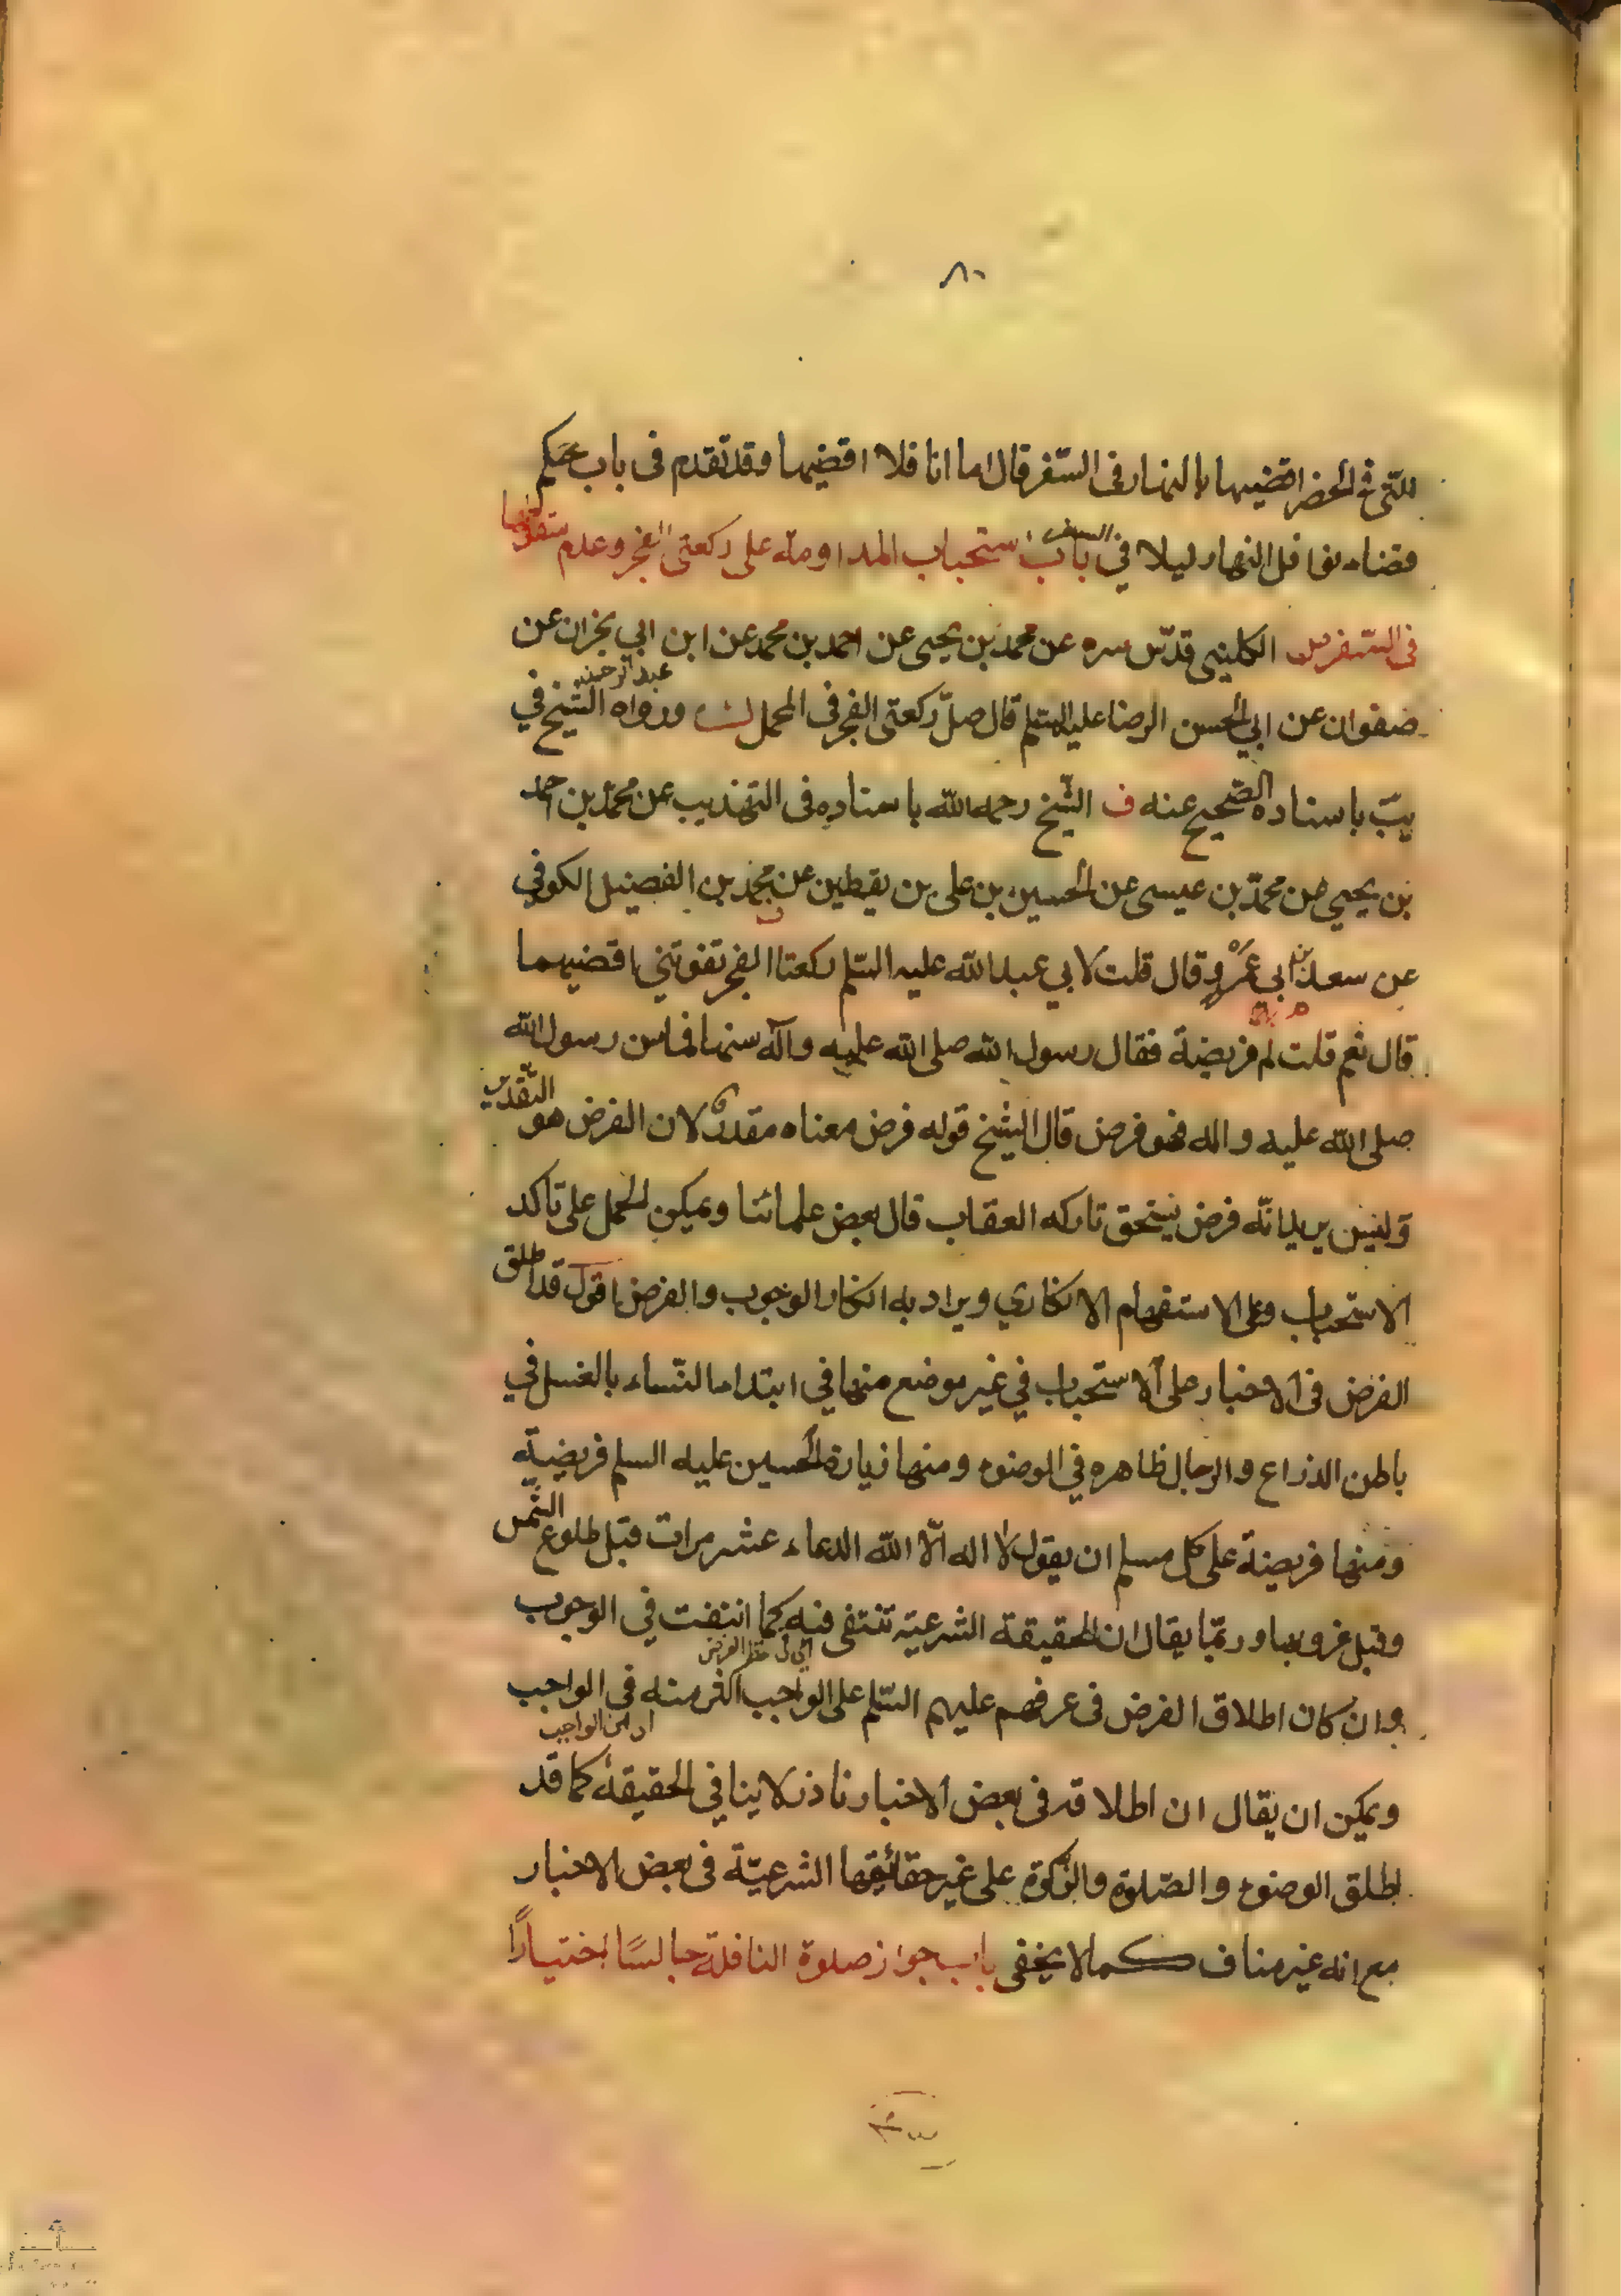 ٨٠
التى فى الحضر اقضيها بالنهار فى السّفر قال اما انا فلا اقضيها وقد تقدم فى باب حكم
قضاء نوافل النهار ليلا في السفر باب استحباب المداومة على ركعتى الفجر وعدم سقوطها
فى السّفر الكلينى قدّس سره عن محمد بن يحيى عن احمد بن محمد عن ابن ابي نجران عن
عبد الرحمن
صفوان عن ابي الحسن الرضا عليه السّلم قال صلّ ركعتى الفجر فى المحمل ورواه الشّيخ في
يبّ باسناده الصّحيح عنه ف الشّيخ رحمه الله باسناده فى التهذيب عن محمّد بن احمد
بن يحيى عن محمّد بن عيسى عن الحسين بن على بن يقطين عن محمد بن الفضيل الكوفي
عن سعد بن ابي عمرو قال قلت لابي عبد الله عليه السّلم ركعتا الفجر تفوتني اقضيهما
قال نعم قلت لم فريضة فقال رسول الله صلى الله عليه وآله سنها فما سن رسول الله
صلى الله عليه واله فهو فرض قال الشّيخ قوله فرض معناه مقدر لان الفرض هو التّقدير
وليس يريد انّه فرض يستحق تاركه العقاب قال بعض علمائنا ويمكن الحمل على تاكد
الاستحباب وعلى الاستفهام الانكاري ويراد به انكار الوجوب والفرض اقول قد اطلق
الفرض فى الاخبار على الاستحباب في غير موضع منها في ابتداء النّساء بالغسل في
باطن الذراع والرجال ظاهره في الوضوء ومنها زيارة الحسين عليه السلم فريضة
ومنها فريضة على كل مسلم ان يقول لا اله الّا الله الدعاء عشر مرات قبل طلوع الشّمس
وقبل غروبها وربّما يقال ان الحقيقة الشرعيّة تنتفى فيه كما انتفت في الوجوب
اي فى لفظ الفرض
وان كان اطلاق الفرض فى عرفهم عليهم السّلم على الواجب اكثر منه فى الواجب
ويمكن ان يقال ان اطلاقه فى بعض الاخبار نادر لا ينافي الحقيقة كما قد
اطلق الوضوء والصّلوة والزّكوة على غير حقائقها الشرعيّة فى بعض الاخبار
مع انه غير مناف كما لا يخفى باب جواز صلوة النافلة جالسًا اختيارًا